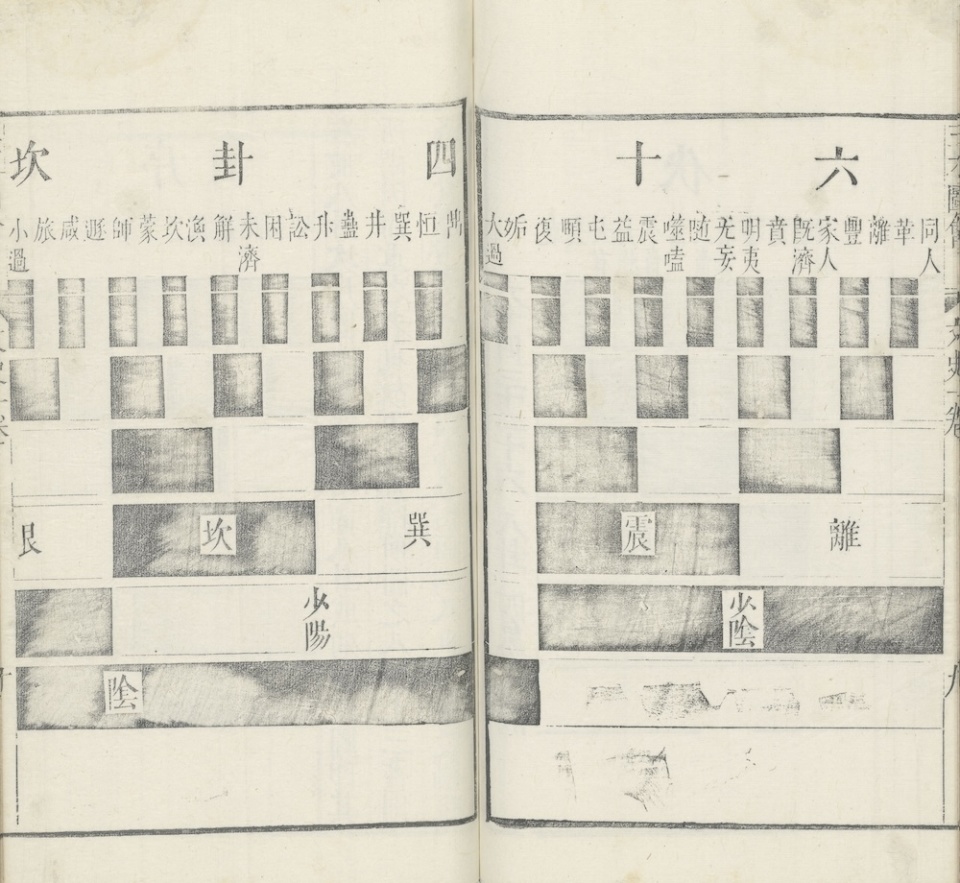 六十四卦坎
同人 革 離 豐 家人 既濟 賁 明夷 无妄 随 噬嗑 震 益 屯 頤 復 姤 大過
鼎 恒 巽 井 蠱 升 訟 困 未濟 解 渙 坎 蒙 師 遯 咸 旅 小過
離 震 巽 坎 艮
少陰 少陽
陰